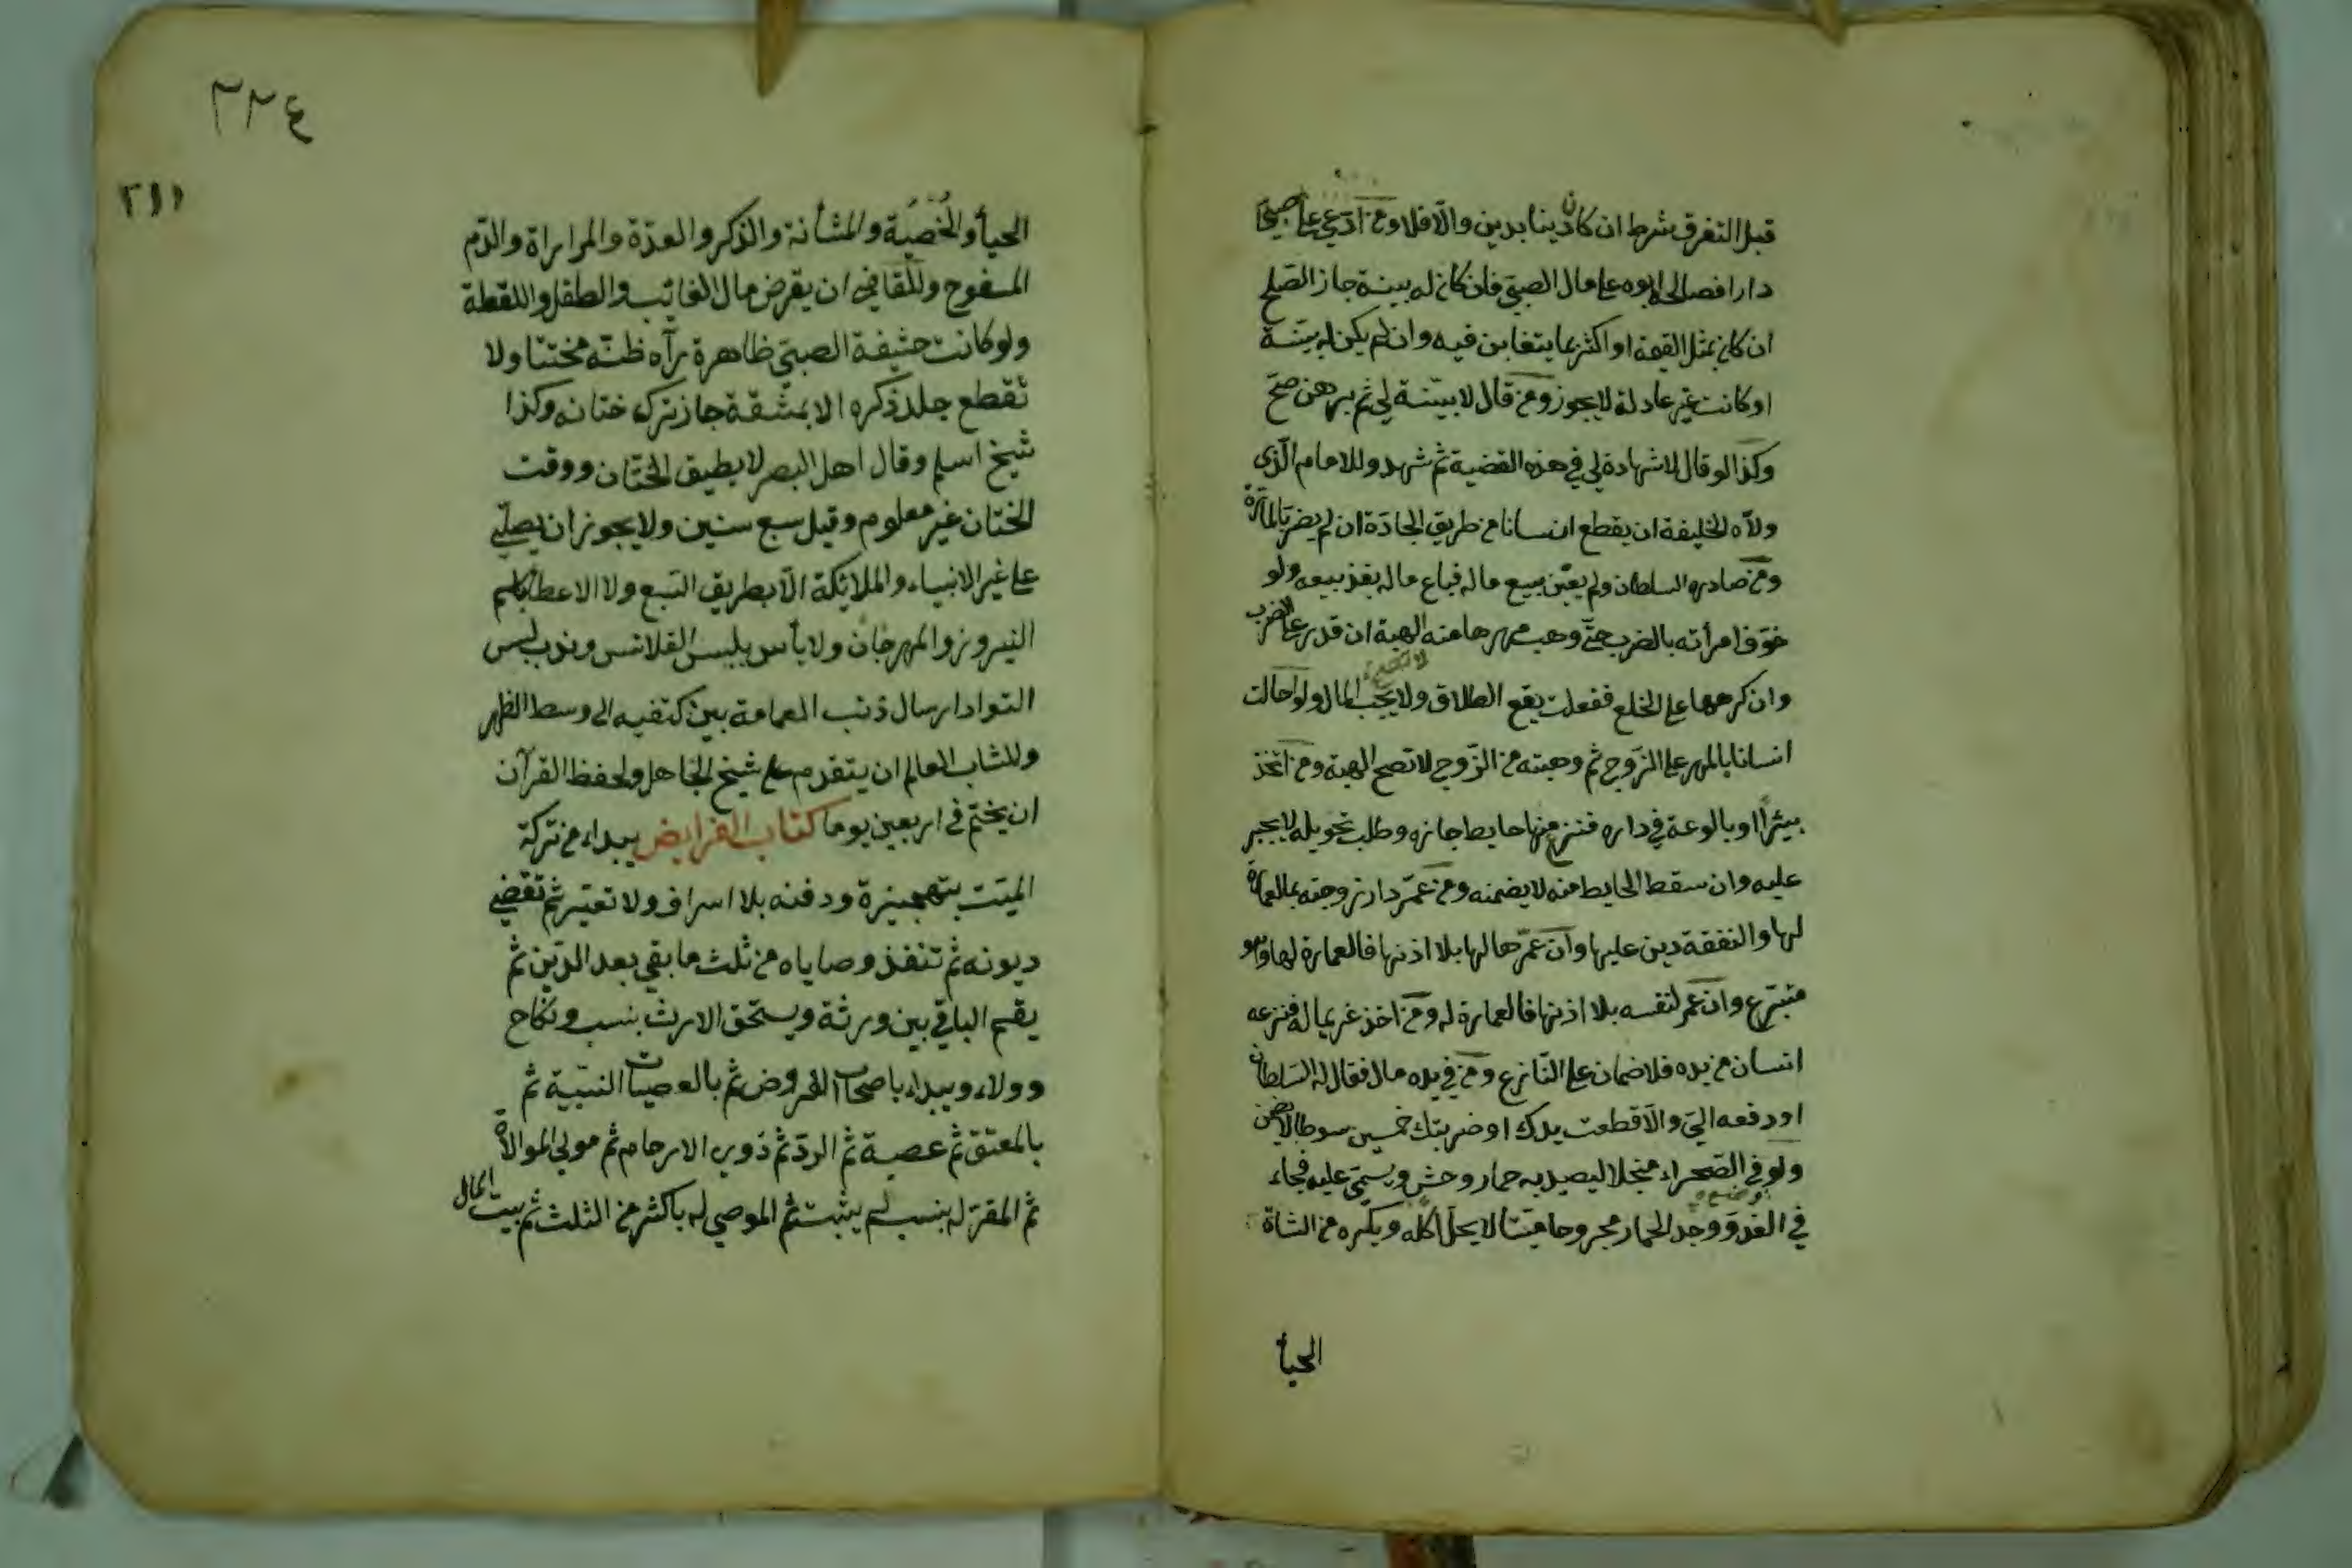 قبل التفرق شرط ان كان دينا بدين والّا فلا ومن ادّعى على صبيّ
دارا فصالحه ابوه على مال الصبيّ فان كان له بينة جاز الصّلح
ان كان بمثل القيمة او اكثر بما يتغابن فيه وان لم يكن له بيّنة
او كانت غير عادلة لا يجوز ومن قال لا بيّنة لي ثم برهن صحّ
وكذا لو قال لا شهادة لي في هذه القضية ثم شهد وللامام الّذى
ولّاه الخليفة ان يقطع انسانا من طريق الجادّة ان لم يضر بالمارّة
ومن صادره السلطان ولم يعيّن بيع ماله فباع ماله نفذ بيعه ولو
خوّف امرأته بالضرب حتّى وهبت مهرها منه الهبة ان قدر على الضرب
لا تصح
وان كرهها على الخلع ففعلت يقع الطلاق ولا يجب المال ولو احالت
انسانا بالمهر على الزّوج ثم وهبته من الزّوج لا تصح الهبة ومن اتّخذ
بيئرا او بالوعة في داره فنز منها حايط جاره وطلب تحويله لا يجبر
عليه وان سقط الحايط منه لا يضمنه ومن عمّر دار زوجته بمالها
لها والنفقة دين عليها وان عمّرها لها بلا اذنها فالعمارة لها وهو
متبرّع وان عمر لنفسه بلا اذنها فالعمارة له ومن اخذ غريما له فنزعه
انسان من يده فلا ضمان على النّازع ومن في يده مال فقال له السّلطان
او دفعه اليّ والّا قطعت يدك او ضربتك خمسين سوطا لا يضمن
ولو في الصّحراء منجلا ليصيد به حمار وحش ويسمّى عليه فجاء
وضع
في الغد ووجد الحمار مجروحا ميّتا لا يحلّ اكله ويكره من الشاة
الحيأ
٣٢٤
٣١١
الحيأ والخصية والمثانة والذّكر والعدّة والمراراة والدّم
المسفوح وللقاضي ان يقرض مال الغائب والطفل واللقطة
ولو كانت حشفة الصبيّ ظاهرة من رآه ظنّه مختتنا ولا
تقطع جلد ذكره الا بمشقة جاز ترك ختانه وكذا
شيخ اسلم وقال اهل البصر لا يطيق الختان ووقت
الختان غير معلوم وقيل سبع سنين ولا يجوز ان يصلّي
على غير الانبياء والملائكة الّا بطريق التبع ولا الاعطا باسم
النيروز والمهرجان ولا بأس بلبس القلانس وندب لبس
السّواد ارسال ذنب العمامة بين كتفيه الى وسط الظهر
وللشاب العالم ان يتقدم على شيخ الجاهل ولحفظ القرآن
ان يختم في اربعين يوما كتاب الفرايض يبداء من تركة
الميّت بتهجيزه ودفنه بلا اسراف ولا تقتير ثم تقضي
ديونه ثم تنفذ وصاياه من ثلث ما بقي بعد الدّين ثم
يقسم الباقي بين ورثة ويستحق الارث بنسب ونكاح
وولاء ويبداء باصحاب الفروض ثم بالعصبات النسبيّة ثم
بالمعتق ثم عصبة ثم الردّ ثم ذوى الارحام ثم مولى الموالاة
ثم المقرّ له بنسب لم يثبت ثم الموصي له باكثر من الثلث ثم بيت المال